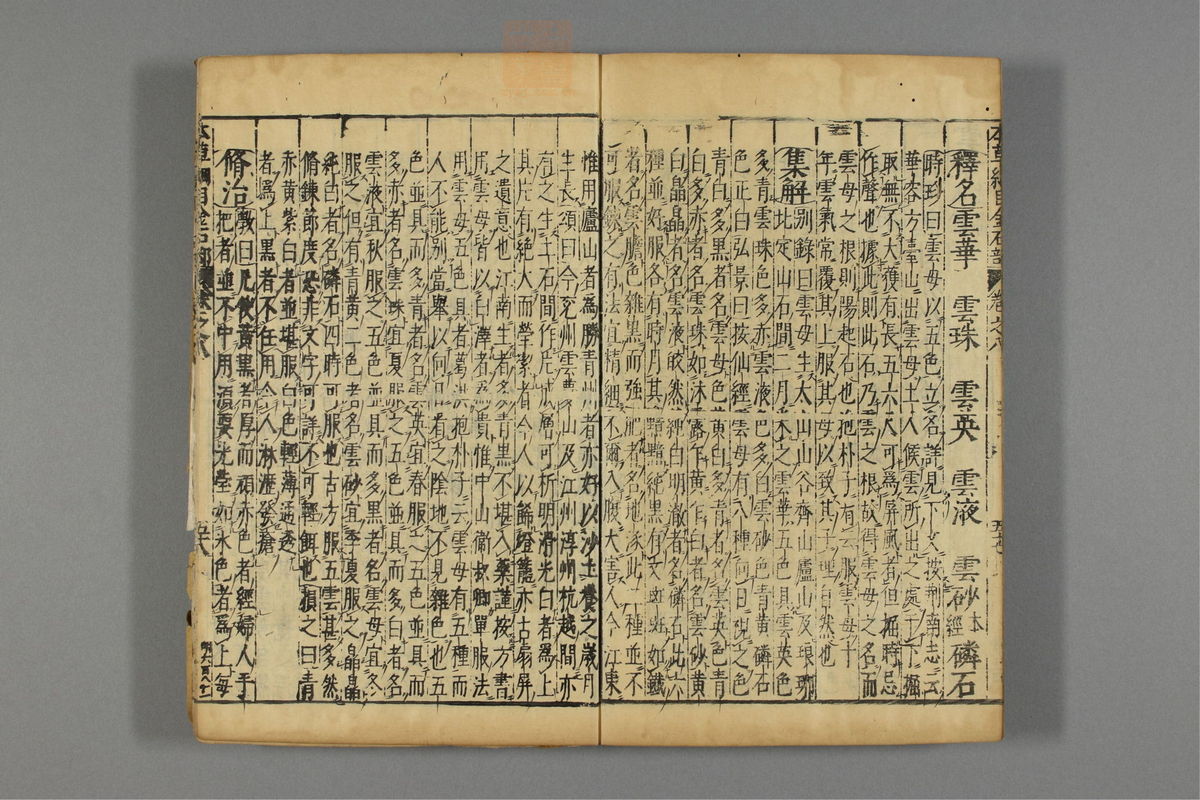 釋名雲華 雲珠 雲英 雲液 雲砂 本經 磷石
時珍曰雲母以五色立名詳見下文按荊南志云
華容方臺山出雲母土人候雲所出之處于下掘
取無不大獲有長五六尺可為屏風者但掘時忌
作聲也據此則此石乃雲之根故得雲母之名而
雲母之根則陽起石也抱朴子有云服雲母十
年雲氣常覆其上服其母以致其子理自然也
集解別錄曰雲母生太山山谷齊山廬山及琅琊
北定山石間二月采之雲華五色具雲英色
多青雲珠色多赤雲液色多白雲砂色青黃磷石
色正白弘景曰按仙經雲母有八種向日視之色
青白多黑者名雲母色黃白多青者名雲英色青
白多赤者名雲珠如冰露乍黃乍白者名雲砂黃
白皛皛者名雲液皎然純白明澈者名磷石此六
種並好服各有時月其黯黯純黑有文斑斑如鐵
者名雲膽色雜黑而強肥者名地涿此二種並不
可服鍊之有法宜精細不爾入腹大害人今江東
本草綱目金石部 卷之八 五十七
惟用廬山者為勝青州者亦好以沙土養之歲月
生長頌曰今兗州雲夢山及江州淳州杭越間亦
有之生土石間作片成層可折明滑光白者為上
其片有絕大而瑩潔者今人以飾燈籠亦古扇屏
之遺意也江南生者多青黑不堪入藥謹按方書
用雲母皆以白澤者為貴惟中山衛叔卿單服法
用雲母五色具者葛洪抱朴子云雲母有五種而
人不能別當舉以向日看之陰地不見雜色也五
色並具而多青者名雲英宜春服之五色並具而
多赤者名雲珠宜夏服之五色並具而多白者名
雲液宜秋服之五色並具而多黑者名雲母宜冬
服之但有青黃二色者名雲砂宜季夏服之皛皛
純白者名磷石四時可服也古方服五雲甚多然
脩鍊節度恐非文字可詳不可輕餌也損之曰青
赤黃紫白者並堪服白色輕薄通透
者為上黑者不任用令人淋瀝發瘡
脩治斅曰凡使黃黑者厚而頑赤色者經婦人手
把者並不中用須要光瑩如冰色者為上每
本草綱目金石部 卷之八 五十八